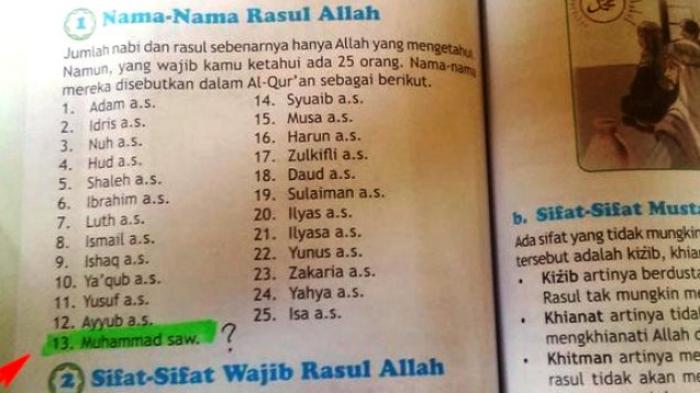 1 Nama-Nama Rasul Allah
Jumlah nabi dan rasul sebenarnya hanya Allah yang mengetahui.
Namun, yang wajib kamu ketahui ada 25 orang. Nama-nama
mereka disebutkan dalam Al-Qur'an sebagai berikut.
1. Adam a.s.
2. Idris a.s.
3. Nuh a.s.
4. Hud a.s.
5. Shaleh a.s.
6. Ibrahim a.s.
7. Luth a.s.
8. Ismail a.s.
9. Ishaq a.s.
10. Ya'qub a.s.
11. Yusuf a.s.
12. Ayyub a.s.
13. Muhammad saw. ?
14. Syuaib a.s.
15. Musa a.s.
16. Harun a.s.
17. Zulkifli a.s.
18. Daud a.s.
19. Sulaiman a.s.
20. Ilyas a.s.
21. Ilyasa a.s.
22. Yunus a.s.
23. Zakaria a.s.
24. Yahya a.s.
25. Isa a.s.
2 Sifat-Sifat Wajib Rasul Allah
b. Sifat-Sifat Musta
Ada sifat yang tidak mungkin
tersebut adalah kiżib, khia
• Kiżib artinya berdusta
Rasul tak mungkin me
• Khianat artinya tida
mengkhianati Allah d
• Khitman artinya me
rasul tidak akan me